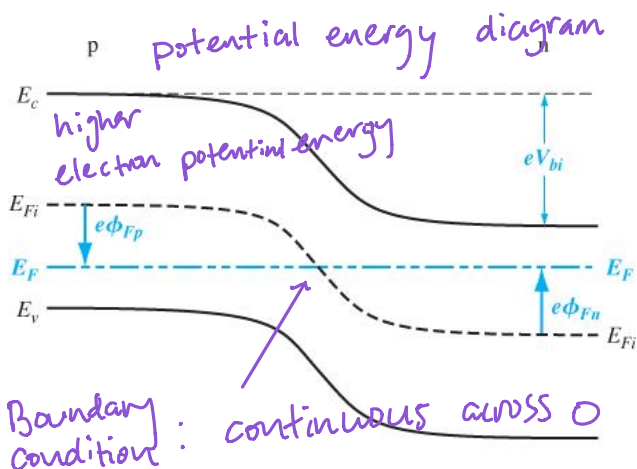 potential energy diagram
p
n
E_c
higher
electron potential energy
eV_bi
E_Fi
eϕ_Fp
E_F
E_F
E_v
eϕ_Fn
E_Fi
Boundary
condition : continuous across 0